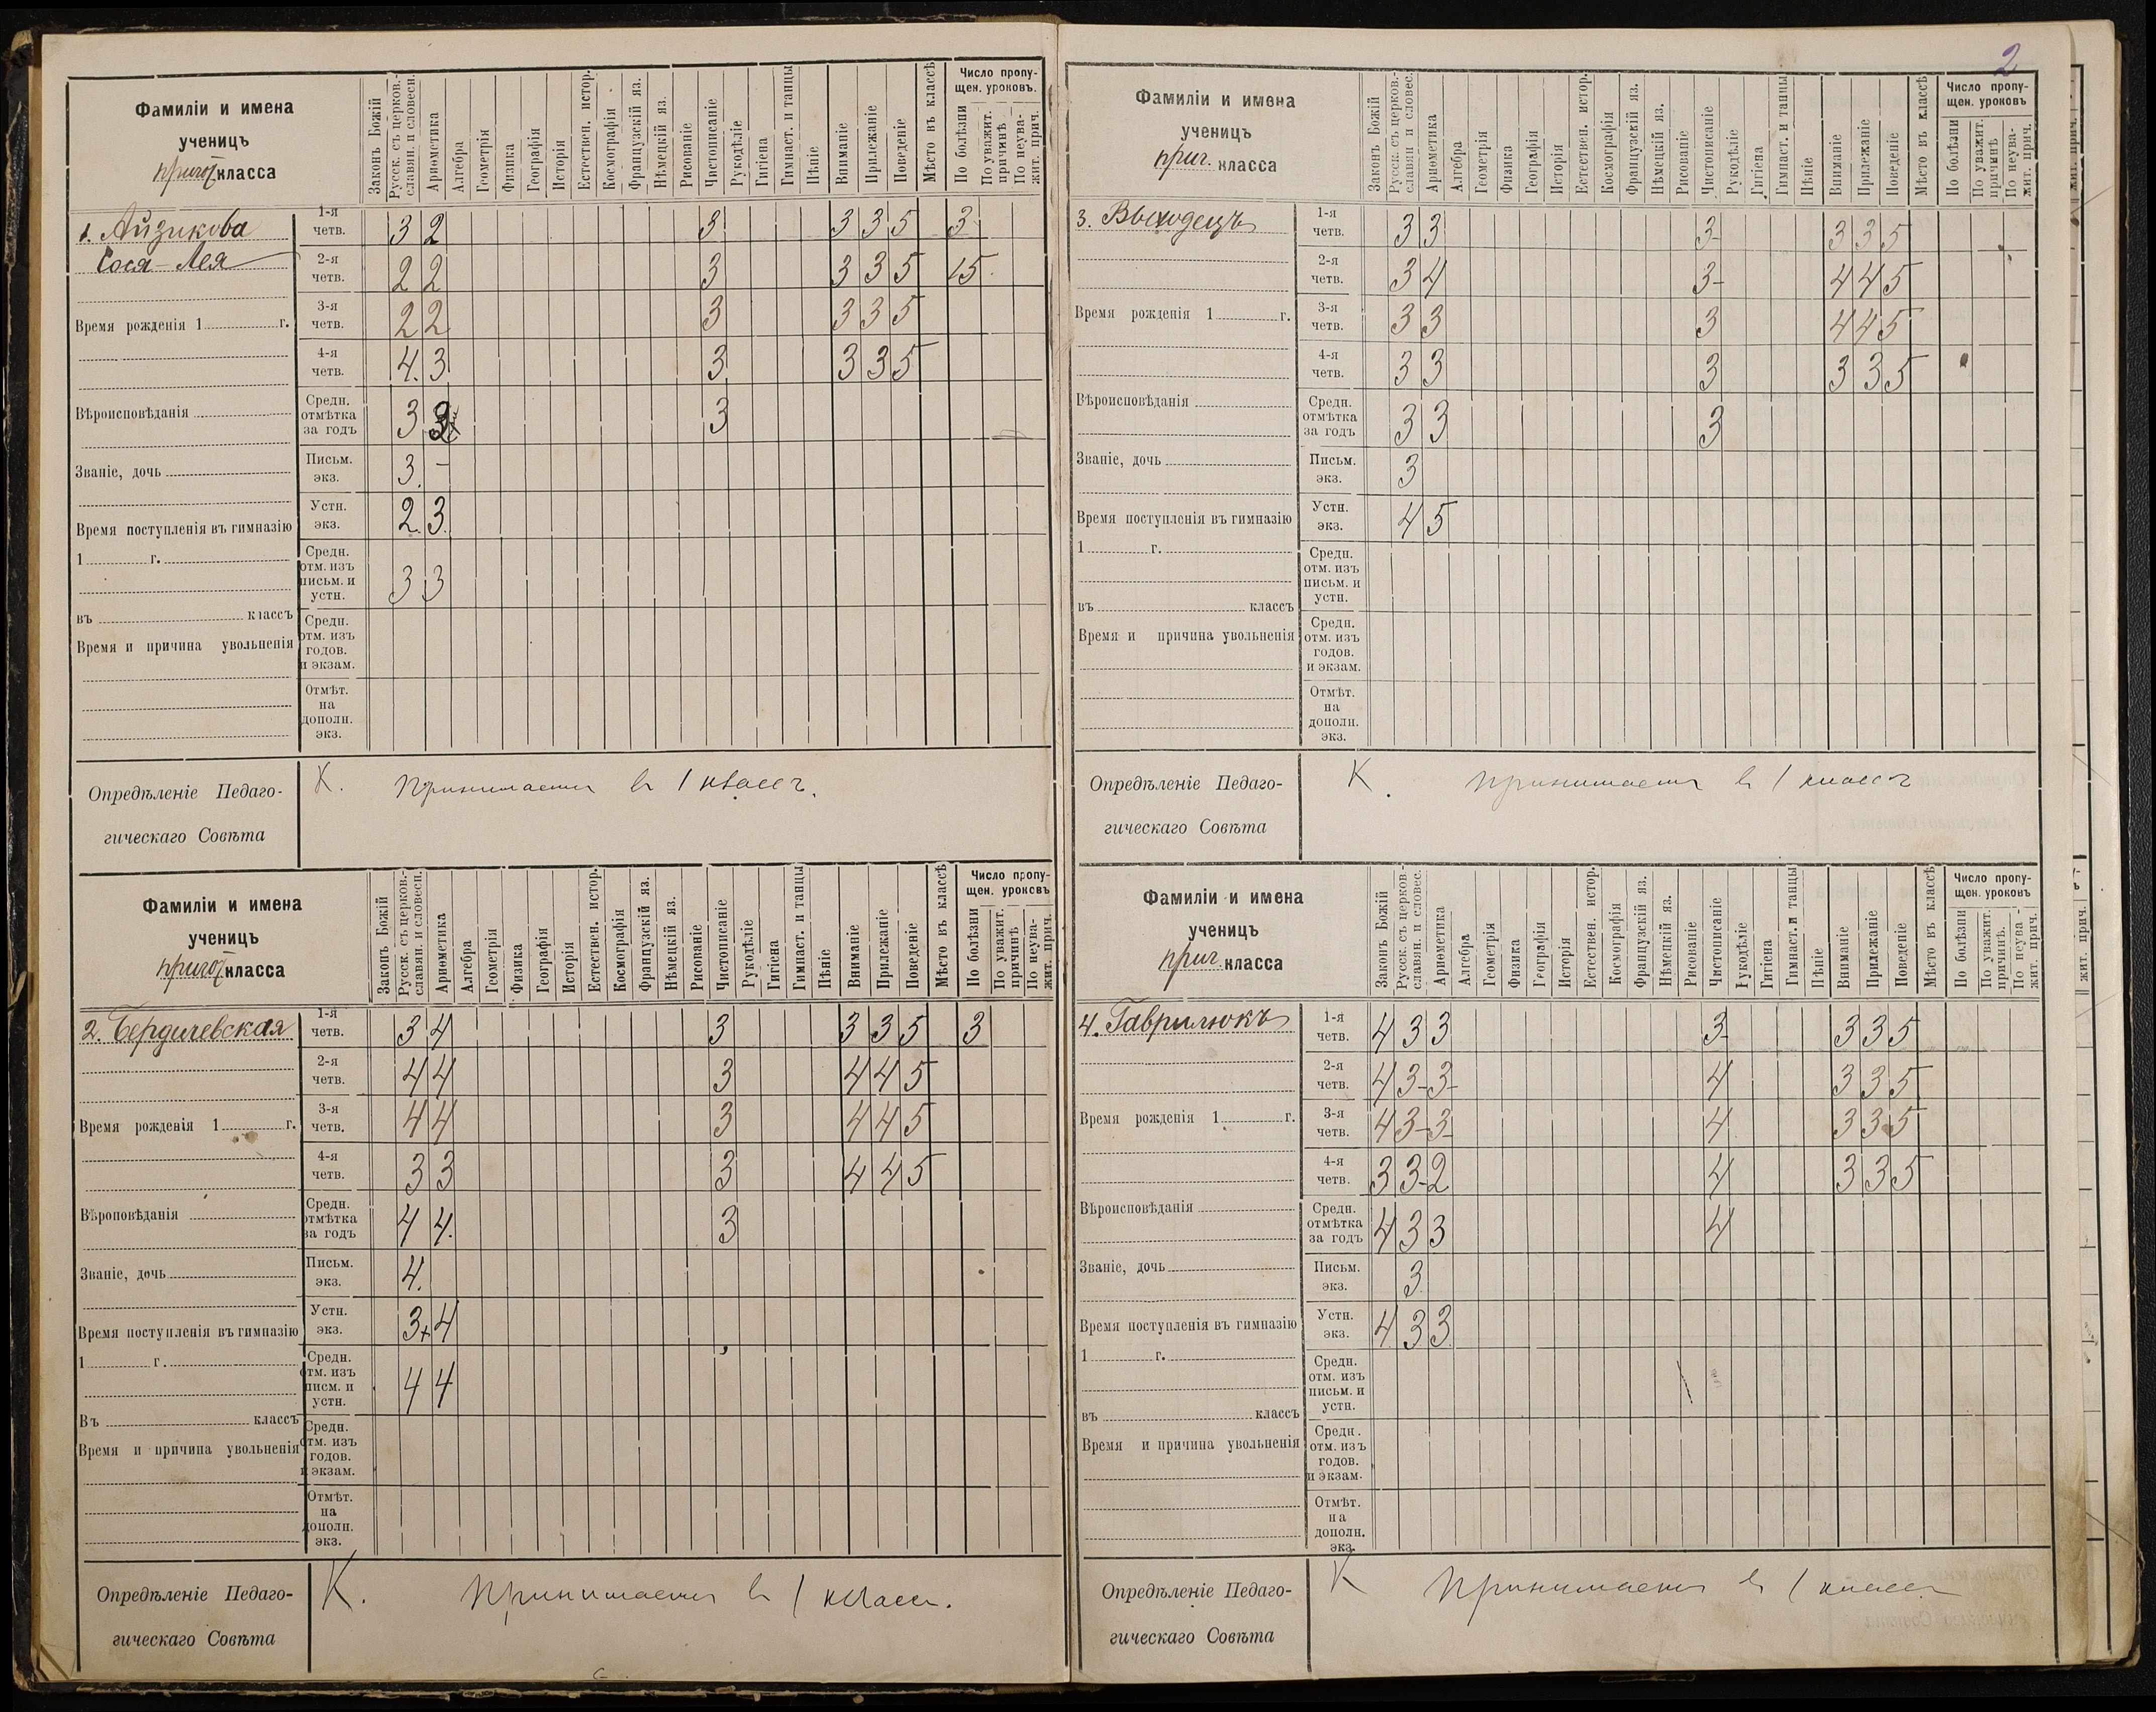 2
Фамиліи и имена
ученицъ
пригот класса
Законъ Божій
Русск. съ церков.-
славян. и словесн.
Ариѳметика
Алгебра
Геометрія
Физика
Географія
Исторія
Естествен. истор.
Космографія
Французскій яз.
Нѣмецкій яз.
Рисованіе
Чистописаніе
Рукодѣліе
Гигіена
Гимнаст. и танцы
Пѣніе
Вниманіе
Прилежаніе
Поведеніе
Мѣсто въ классѣ
Число пропу-
щен. уроковъ.
По болѣзни
По уважит.
причинѣ
По неува-
жит. прич.
1. Айзикова
Сося-Лея
Время рожденія 1 г.
Вѣроисповѣданія
Званіе, дочь
Время поступленія въ гимназію
1 г.
въ классъ
Время и причина увольненія
1-я четв. 3 2 3 3 3 5 3
2-я четв. 2 2 3 3 3 5 15
3-я четв. 2 2 3 3 3 5
4-я четв. 4 3 3 3 3 5
Средн. отмѣтка за годъ 3 3 3
Письм. экз. 3 -
Устн. экз. 2 3
Средн. отм. изъ письм. и устн. 3 3
Средн. отм. изъ годов. и экзам.
Отмѣт. на дополн. экз.
Опредѣленіе Педаго-
гическаго Совѣта
К. Принимается въ 1 классъ.
Фамиліи и имена
ученицъ
пригот класса
Законъ Божій
Русск. съ церков.-
славян. и словесн.
Ариѳметика
Алгебра
Геометрія
Физика
Географія
Исторія
Естествен. истор.
Космографія
Французскій яз.
Нѣмецкій яз.
Рисованіе
Чистописаніе
Рукодѣліе
Гигіена
Гимнаст. и танцы
Пѣніе
Вниманіе
Прилежаніе
Поведеніе
Мѣсто въ классѣ
Число пропу-
щен. уроковъ
По болѣзни
По уважит.
причинѣ
По неува-
жит. прич.
2. Бердичевская
Время рожденія 1 г.
Вѣроповѣданія
Званіе, дочь
Время поступленія въ гимназію
1 г.
Въ классъ
Время и причина увольненія
1-я четв. 3 4 3 3 3 5 3
2-я четв. 4 4 3 4 4 5
3-я четв. 4 4 3 4 4 5
4-я четв. 3 3 3 4 4 5
Средн. отмѣтка за годъ 4 4. 3
Письм. экз. 4.
Устн. экз. 3+ 4
Средн. отм. изъ писм. и устн. 4 4
Средн. отм. изъ годов. и экзам.
Отмѣт. на дополн. экз.
Опредѣленіе Педаго-
гическаго Совѣта
К. Принимается въ 1 классъ.
Фамиліи и имена
ученицъ
приг. класса
Законъ Божій
Русск. съ церков.-
славян и словес.
Ариѳметика
Алгебра
Геометрія
Физика
Географія
Исторія
Естествен. истор.
Космографія
Французскій яз.
Нѣмецкій яз.
Рисованіе
Чистописаніе
Рукодѣліе
Гигіена
Гимнаст. и танцы
Пѣніе
Вниманіе
Прилежаніе
Поведеніе
Мѣсто въ классѣ
Число пропу-
щен. уроковъ
По болѣзни
По уважит.
причинѣ
По неува-
жит. прич.
3. Выходецъ
Время рожденія 1 г.
Вѣроисповѣданія
Званіе, дочь
Время поступленія въ гимназію
1 г.
въ классъ
Время и причина увольненія
1-я четв. 3 3 3- 3 3 5
2-я четв. 3 4 3- 4 4 5
3-я четв. 3 3 3 4 4 5
4-я четв. 3 3 3 3 3 5
Средн. отмѣтка за годъ 3 3 3
Письм. экз. 3
Устн. экз. 4 5
Средн. отм. изъ письм. и устн.
Средн. отм. изъ годов. и экзам.
Отмѣт. на дополн. экз.
Опредѣленіе Педаго-
гическаго Совѣта
К. Принимается въ 1 классъ
Фамиліи и имена
ученицъ
приг. класса
Законъ Божій
Русск. съ церков.-
славян. и словес.
Ариѳметика
Алгебра
Геометрія
Физика
Географія
Исторія
Естествен. истор.
Космографія
Французскій яз.
Нѣмецкій яз.
Рисованіе
Чистописаніе
Рукодѣліе
Гигіена
Гимнаст. и танцы
Пѣніе
Вниманіе
Прилежаніе
Поведеніе
Мѣсто въ классѣ
Число пропу-
щен. уроковъ
По болѣзни
По уважит.
причинѣ.
По неува-
жит. прич.
4. Гаврилюкъ
Время рожденія 1 г.
Вѣроисповѣданія
Званіе, дочь
Время поступленія въ гимназію
1 г.
въ классъ
Время и причина увольненія
1-я четв. 4 3 3 3- 3 3 5
2-я четв. 4 3- 3- 4 3 3 5
3-я четв. 4 3- 3- 4 3 3 5
4-я четв. 3 3- 2 4 3 3 5
Средн. отмѣтка за годъ 4 3 3 4
Письм. экз. 3
Устн. экз. 4 3 3
Средн. отм. изъ письм. и устн.
Средн. отм. изъ годов. и экзам.
Отмѣт. на дополн. экз.
Опредѣленіе Педаго-
гическаго Совѣта
К Принимается въ 1 классъ